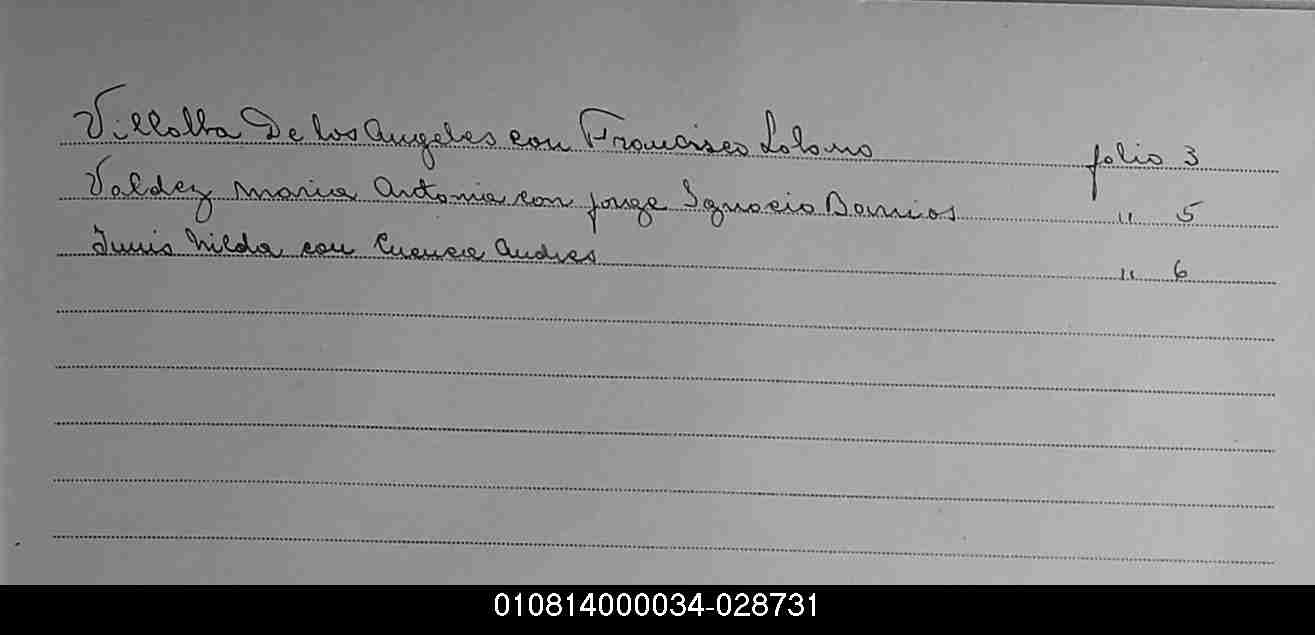 Villalba De los Angeles con Francisco Lobono folio 3
Valdez maria Antonia con jorge Ignacio Barrios " 5
nilda con Cuenca Andres " 6
010814000034-028731